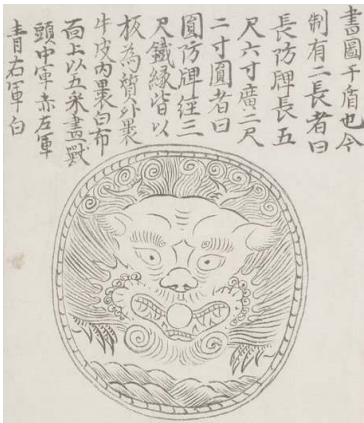 書圖干盾也今
制有二長者曰
長防牌長五
尺六寸廣二尺
二寸圓者曰
圓防牌徑三
尺鐵緣皆以
板為質外裹
牛皮內裹白布
面上以五采畫獸
頭中軍赤左軍
青右軍白